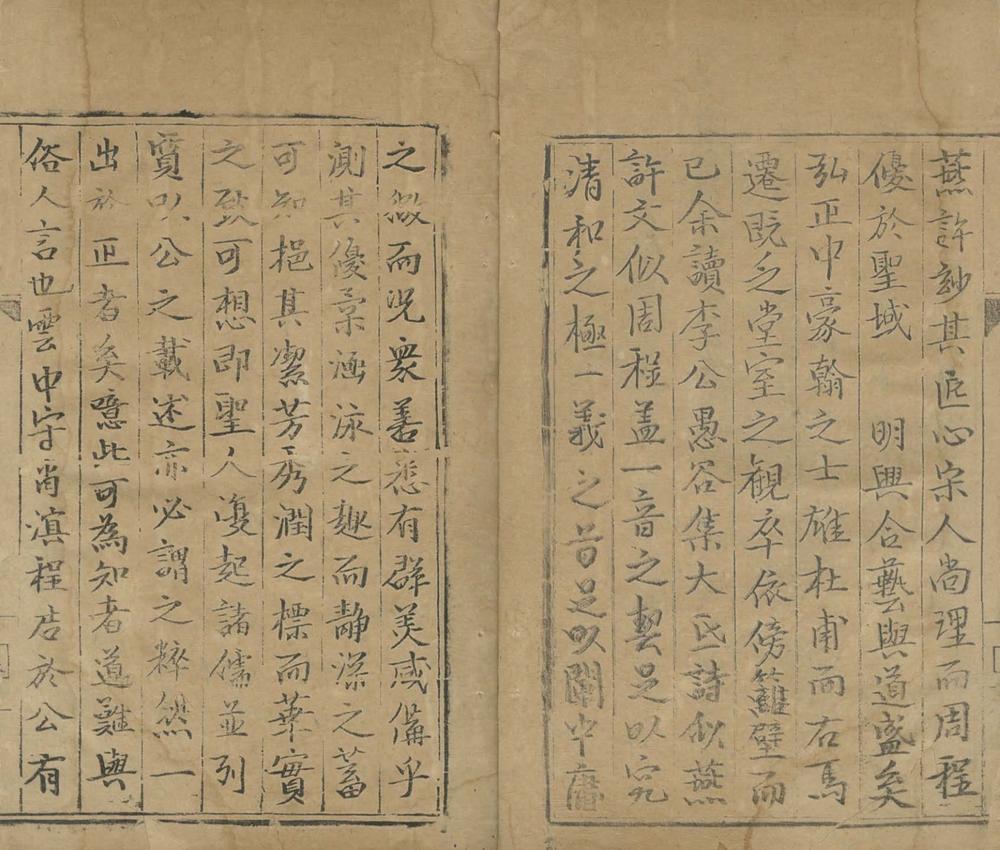 燕許妙其匠心宋人尚理而周程
優於聖域　明興合藝與道盛矣
弘正中豪翰之士雄杜甫而右馬
遷既乏堂室之観卒依傍籬壁而
已余讀李公愚谷集大氐詩似燕
許文似周程盖一音之契足以完
清和之極一義之旨足以闡中庸
之微而況衆善悉有群美咸備乎
測其優柔涵泳之趣而静深之蓄
可知挹其潔芳秀潤之標而華實
之致可想即聖人復起諸儒並列
質以公之載述亦必謂之粹然一
出於正者矣噫此可為知者道難與
俗人言也雲中守甯滇程店於公有